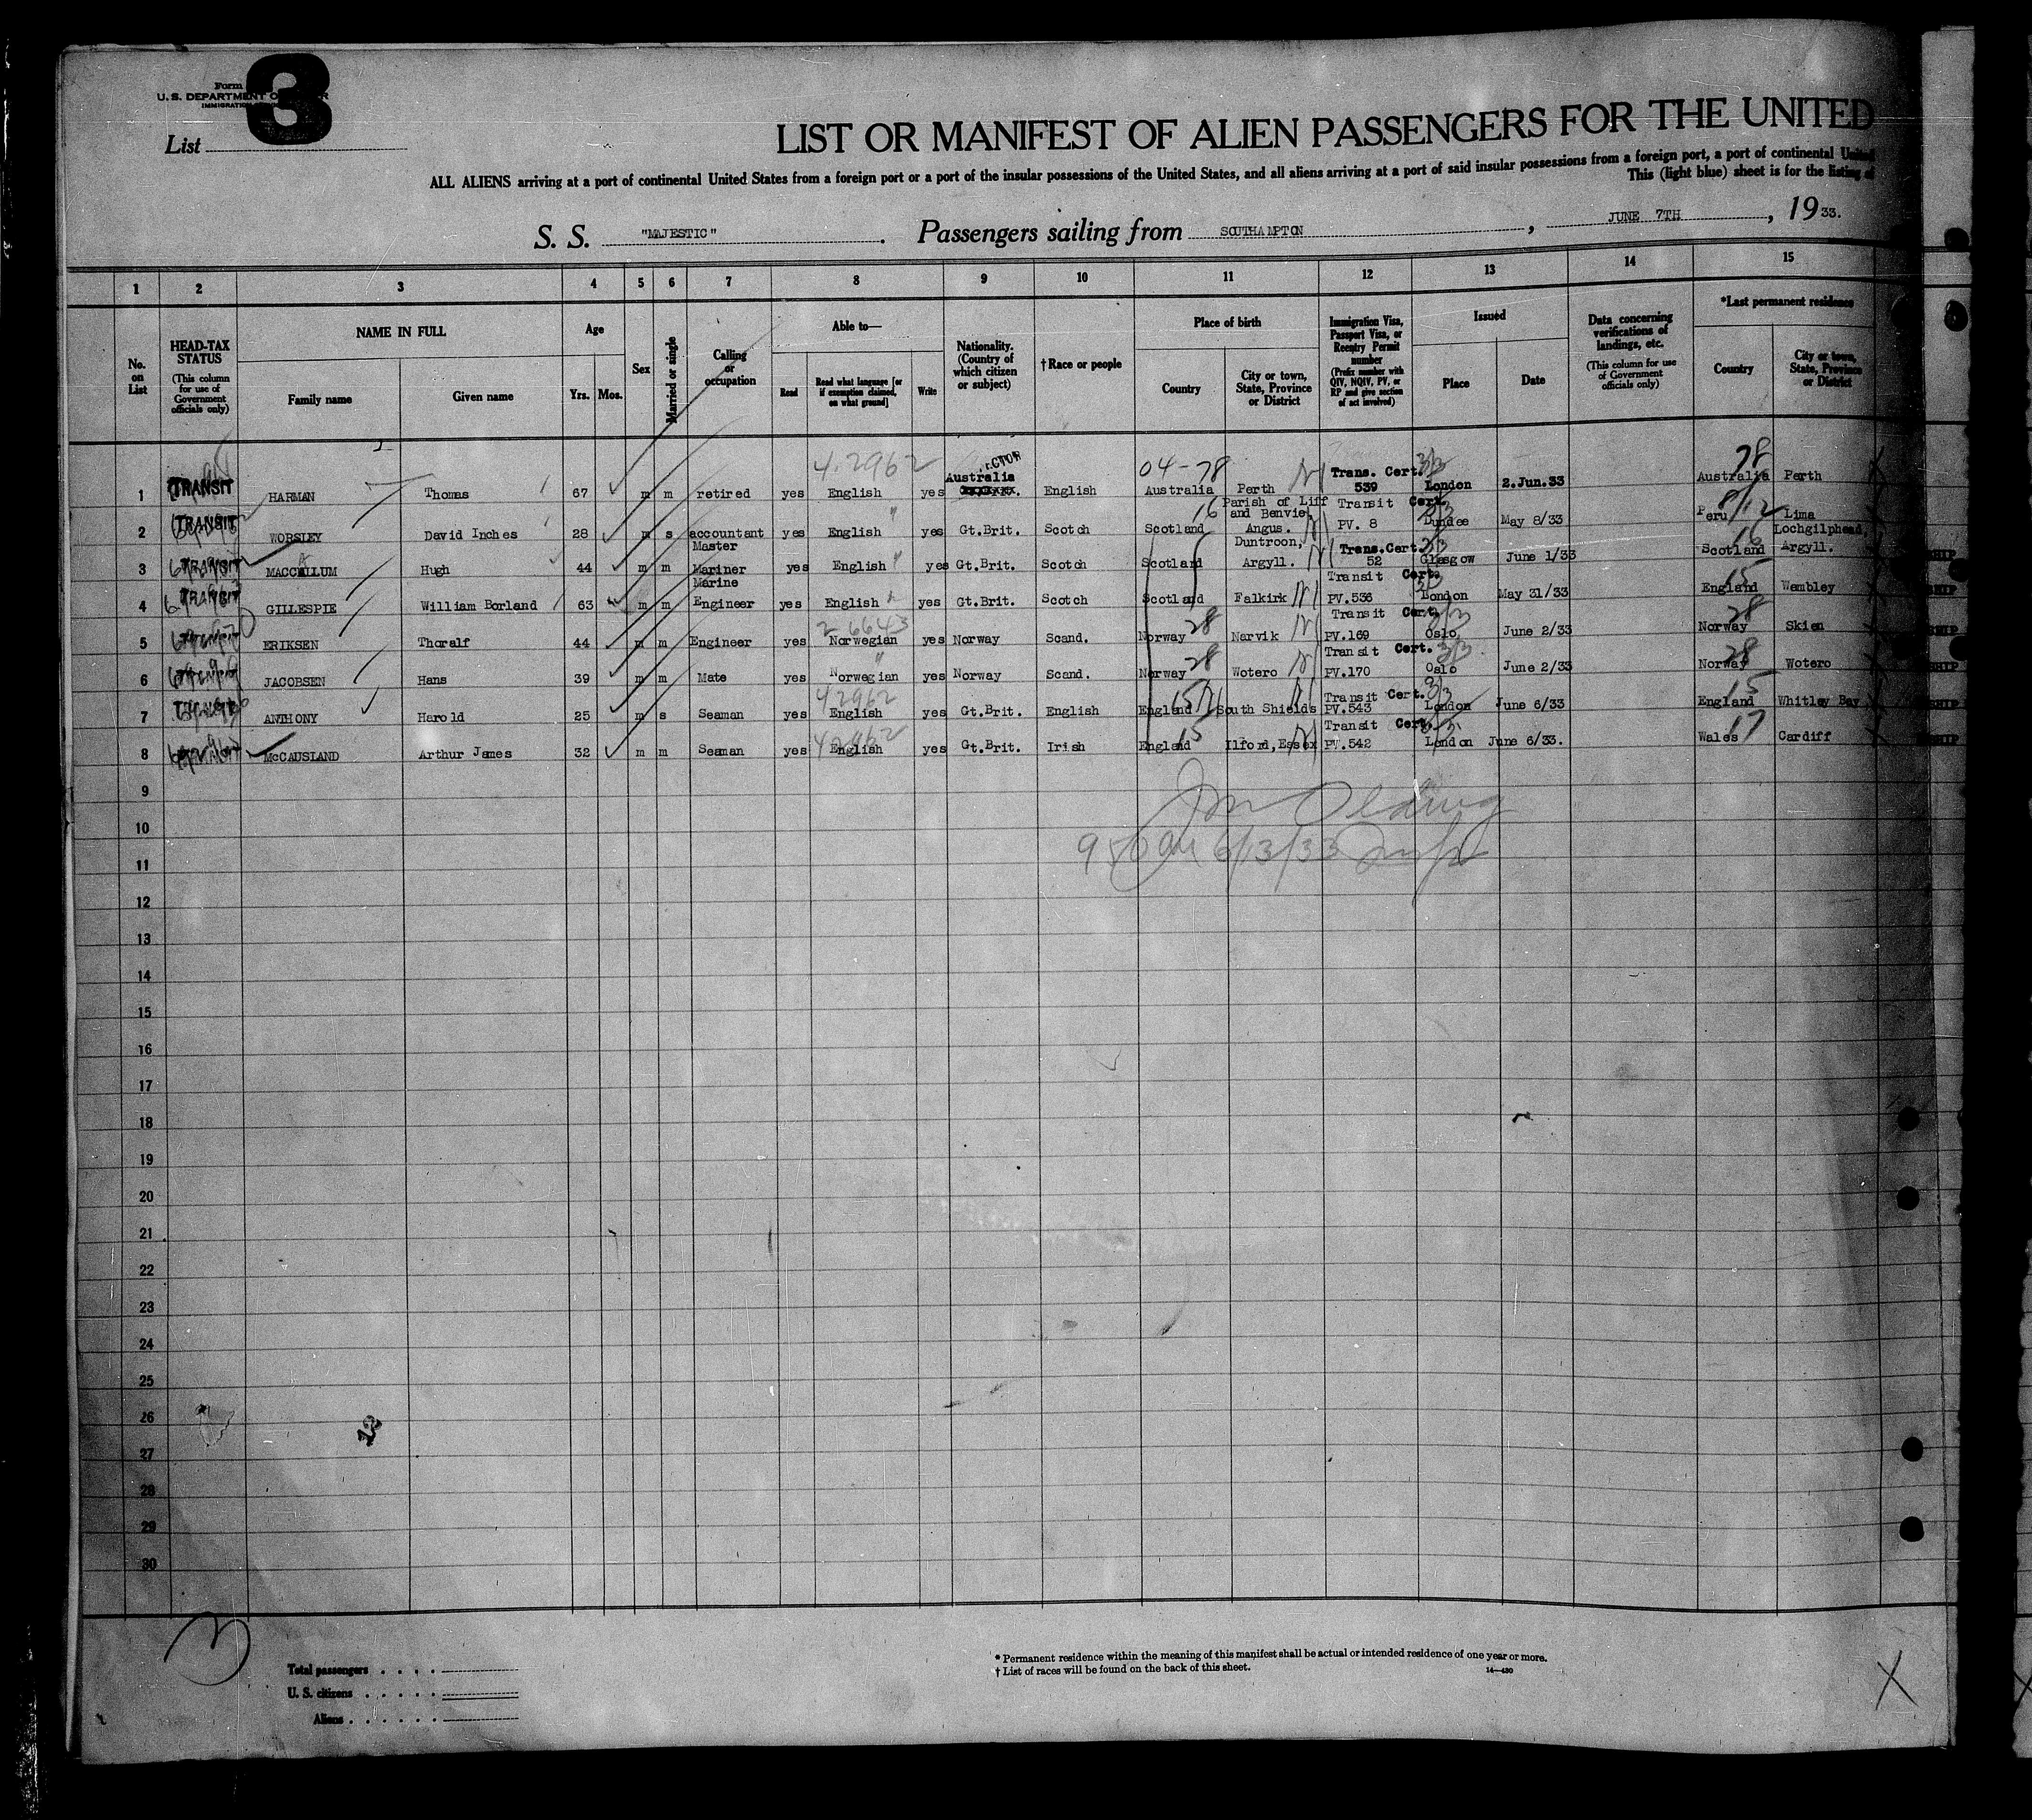 Form
U. S. DEPARTMENT OF
3
List
LIST OR MANIFEST OF ALIEN PASSENGERS FOR THE UNITED
ALL ALIENS arriving at a port of continental United States from a foreign port or a port of the insular possessions of the United States, and all aliens arriving at a port of said insular possessions from a foreign port, a port of continental United
This (light blue) sheet is for the listing of
S. S. "MAJESTIC". Passengers sailing from SOUTHAMPTON, JUNE 7TH, 1933.
1 2 3 4 5 6 7 8 9 10 11 12 13 14 15
No. on List
HEAD-TAX STATUS (This column for use of Government officials only)
NAME IN FULL
Family name Given name
Age
Yrs. Mos.
Sex
Married or single
Calling or occupation
Able to—
Read Read what language [or if exemption claimed, on what ground] Write
Nationality. (Country of which citizen or subject)
†Race or people
Place of birth
Country City or town, State, Province or District
Immigration Visa, Passport Visa, or Reentry Permit number (Prefix number with QIV, NQIV, PV, or RP and give section of act involved)
Issued
Place Date
Data concerning verifications of landings, etc. (This column for use of Government officials only)
*Last permanent residence
Country City or town, State, Province or District
4-2962 04-78 28
1 TRANSIT HARMAN Thomas 67 m m retired yes English yes Australia English Australia Perth Trans. Cert. 539 London 2.Jun.33 Australia Perth
2 TRANSIT WORSLEY David Inches 28 m s accountant yes English yes Gt.Brit. Scotch Scotland 16 Parish of Liff and Benvie, Angus. Transit Cert. PV. 8 Dundee May 8/33 Peru Lima
3 TRANSIT MACCALLUM Hugh 44 m m Master Mariner yes English yes Gt.Brit. Scotch Scotland Duntroon, Argyll. Trans.Cert. 52 Glasgow June 1/33 Scotland 16 Lochgilphead, Argyll.
4 TRANSIT GILLESPIE William Borland 63 m m Marine Engineer yes English yes Gt.Brit. Scotch Scotland Falkirk Transit Cert. PV.536 London May 31/33 England 15 Wembley
5 ERIKSEN Thoralf 44 m m Engineer yes 2-6643 Norwegian yes Norway Scand. Norway 28 Narvik Transit Cert. PV.169 Oslo June 2/33 Norway 28 Skien
6 JACOBSEN Hans 39 m m Mate yes Norwegian yes Norway Scand. Norway 28 Wotero Transit Cert. PV.170 Oslo June 2/33 Norway 28 Wotero
7 TRANSIT ANTHONY Harold 25 m s Seaman yes 42962 English yes Gt.Brit. English England 15 South Shields Transit Cert. PV.543 London June 6/33 England 15 Whitley Bay
8 McCAUSLAND Arthur James 32 m m Seaman yes 42962 English yes Gt.Brit. Irish England 15 Ilford, Essex Transit Cert. PV.542 London June 6/33. Wales 17 Cardiff
9
10
6/13/33
11
12
13
14
15
16
17
18
19
20
21
22
23
24
25
26
12
27
28
29
30
3
Total passengers
U. S. citizens
Aliens
* Permanent residence within the meaning of this manifest shall be actual or intended residence of one year or more.
† List of races will be found on the back of this sheet.
14—430
X